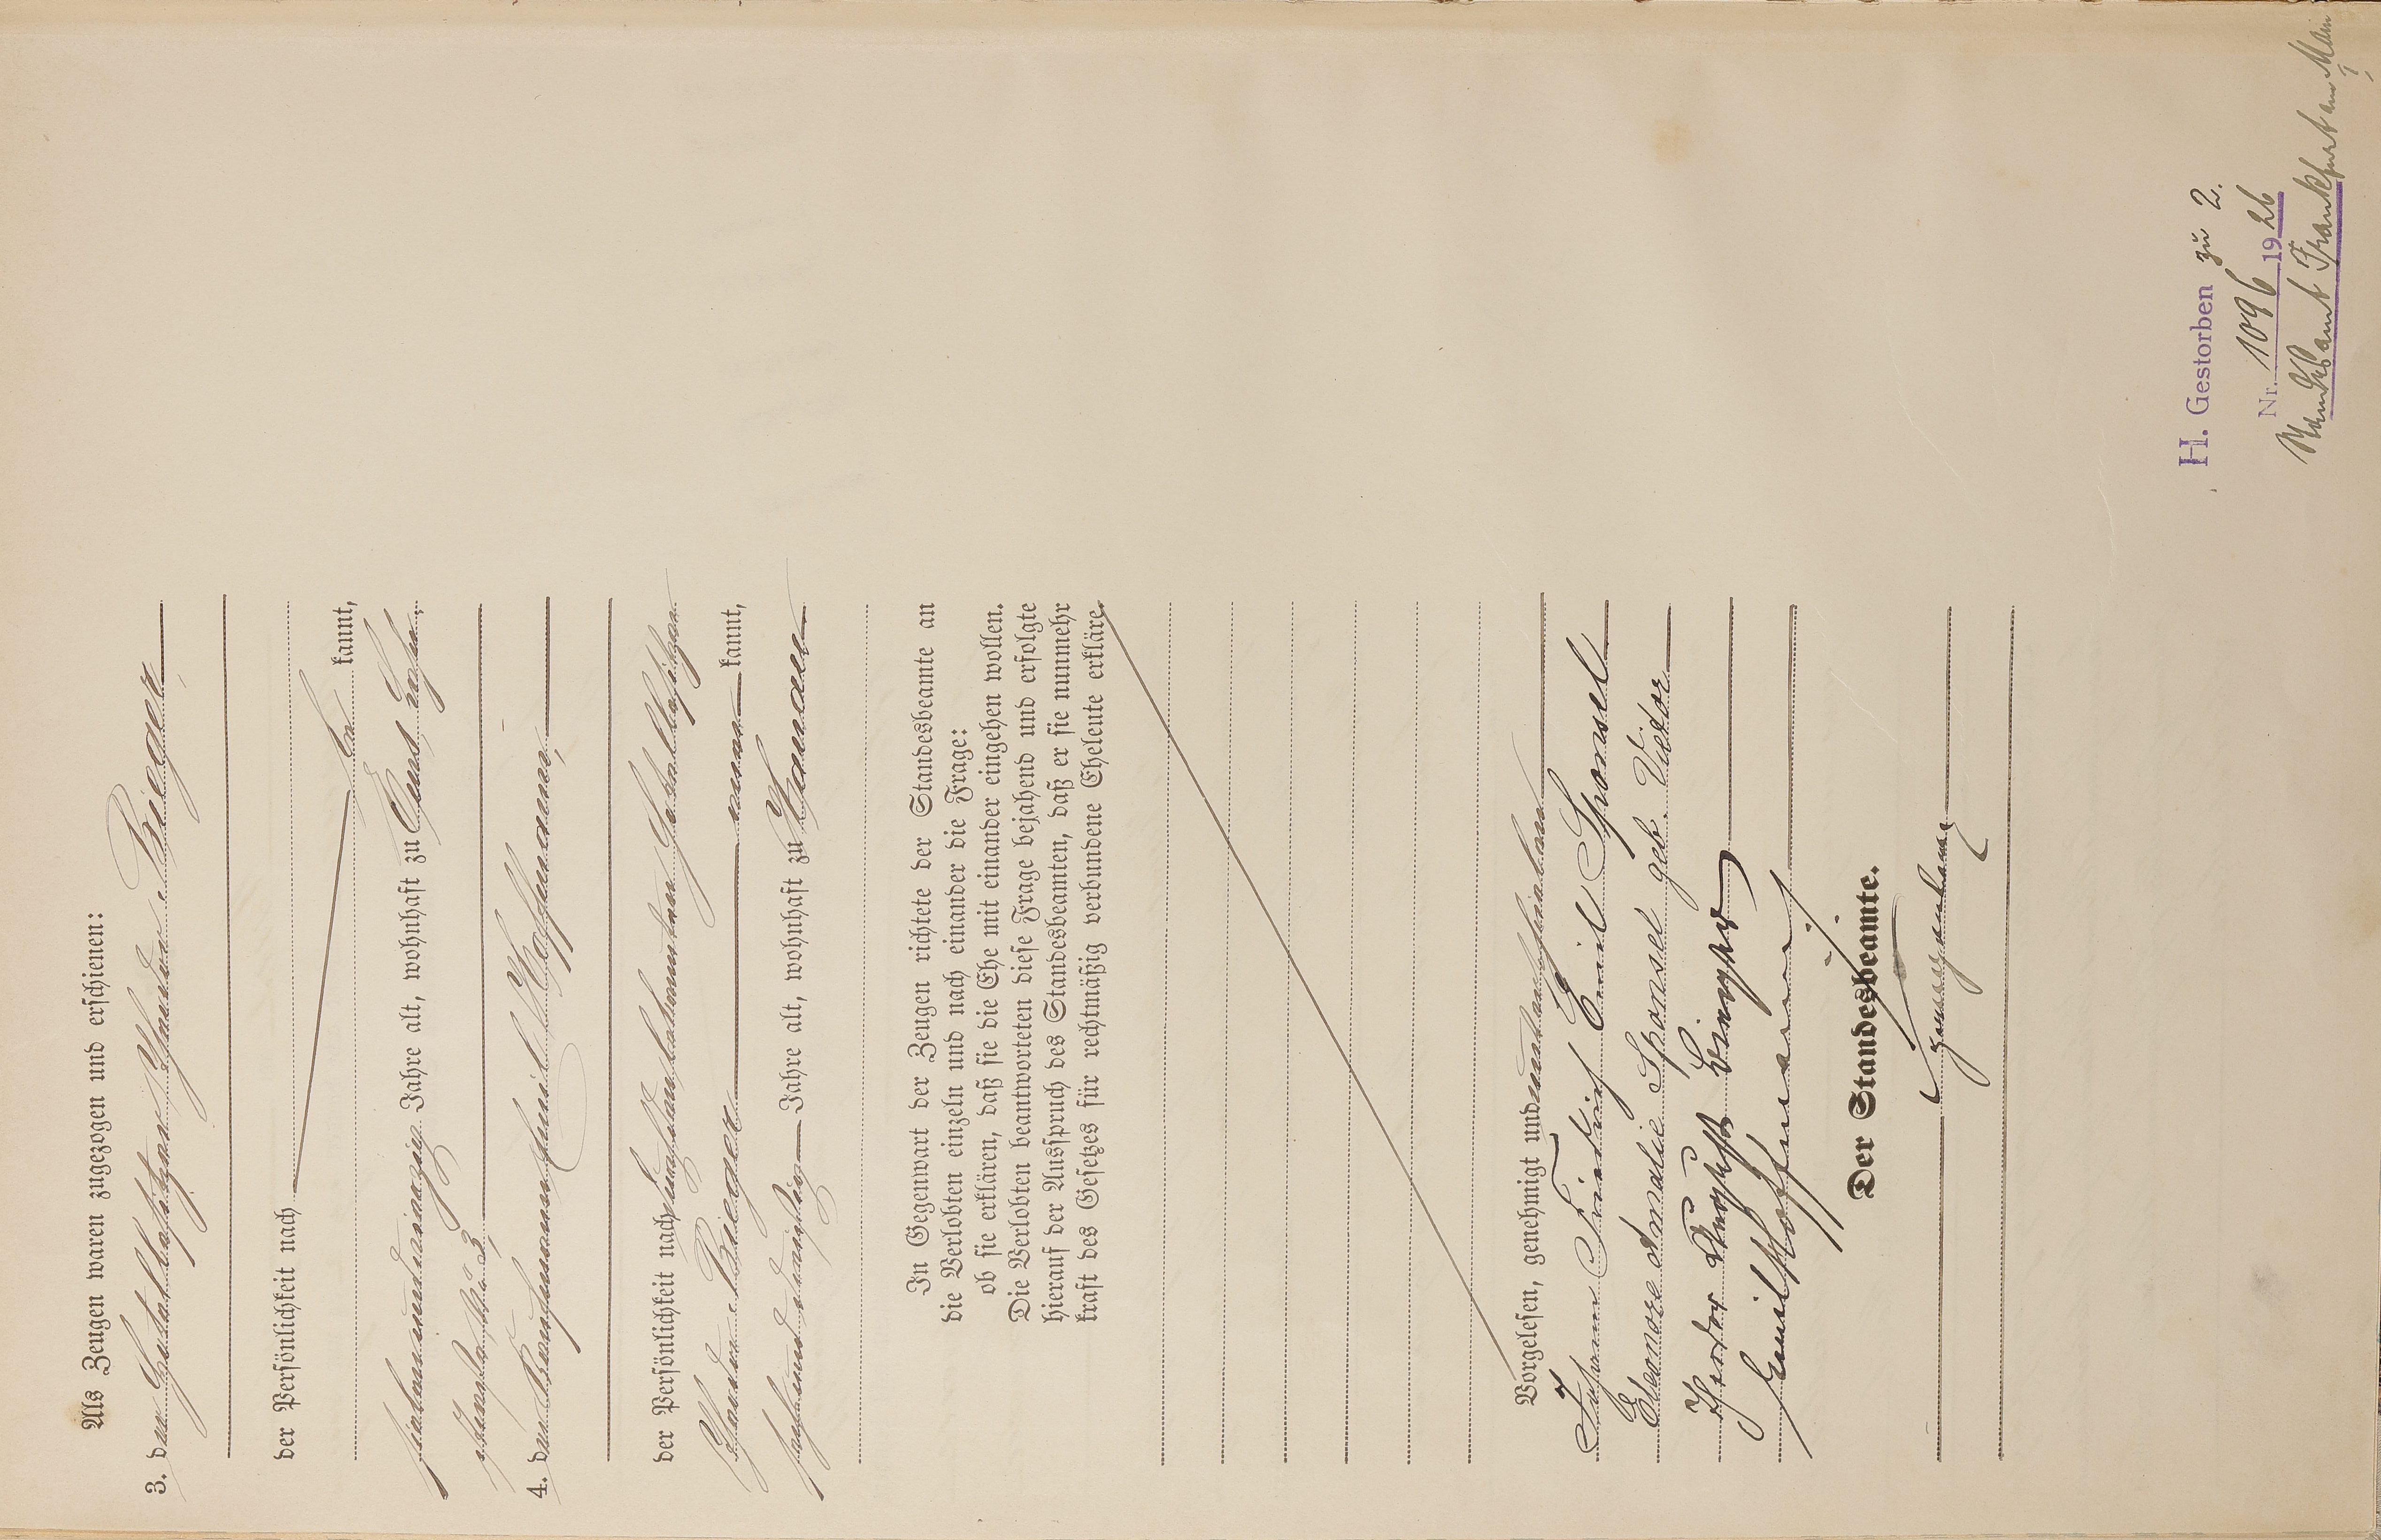 Als Zeugen waren zugezogen und erschienen:
3. der Hotelbesitzer Theodor Rieger
der Persönlichkeit nach
be kannt,
siebenunddreißig Jahre alt, wohnhaft zu
4. der Kaufmann Emil Hoffmann,
der Persönlichkeit nach durch den bekannten Hotelbesitzer
Theodor Rieger anerkannt,
sechsunddreißig Jahre alt, wohnhaft zu Hanau
In Gegenwart der Zeugen richtete der Standesbeamte an
die Verlobten einzeln und nach einander die Frage:
ob sie erklären, daß sie die Ehe mit einander eingehen wollen.
Die Verlobten beantworteten diese Frage bejahend und erfolgte
hierauf der Ausspruch des Standesbeamten, daß er sie nunmehr
kraft des Gesetzes für rechtmäßig verbundene Eheleute erkläre.
Vorgelesen, genehmigt und unterschrieben
Johann Friedrich Emil Sponsel
Eleonore Amalie Sponsel geb. Vietor
Theodor Rieger
Emil Hoffmann
Der Standesbeamte.
H. Gestorben zu 2.
Nr. 1096 1926
Standesamt Frankfurt am Main
I